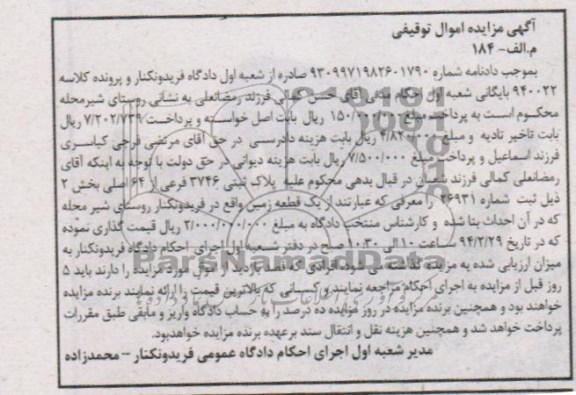 آگهی مزایده اموال توقیفی
م.الف- ۱۸۴
بموجب دادنامه شماره ۹۳۰۹۹۷۱۹۸۲۶۰۱۷۹۰ صادره از شعبه اول دادگاه فریدونکنار و پرونده کلاسه
۹۴۰۰۲۲ بایگانی شعبه اول احکام مدنی آقای حسن کمالی فرزند رمضانعلی به نشانی روستای شیرمحله
محکوم است به پرداخت مبلغ ۱۵۰/۰۰۰/۰۰۰ ریال بابت اصل خواسته و پرداخت ۷/۲۰۲/۷۳۹ ریال
بابت تاخیر تادیه و مبلغ ۴/۸۲۰/۰۰۰ ریال بابت هزینه دادرسی در حق آقای مرتضی فرجی کیاسری
فرزند اسماعیل و پرداخت مبلغ ۷/۵۰۰/۰۰۰ ریال بابت هزینه دیوانی در حق دولت با توجه به اینکه آقای
رمضانعلی کمالی فرزند شعبان در قبال بدهی محکوم علیه پلاک ثبتی ۳۷۴۶ فرعی از ۶۴ اصلی بخش ۲
ذیل ثبت شماره ۲۶۹۳۱ را معرفی که عبارتند از یک قطعه زمین واقع در فریدونکنار روستای شیر محله
که در آن احداث بنا شده و کارشناس منتخب دادگاه به مبلغ ۲/۰۰۰/۰۰۰/۰۰۰ ریال قیمت گذاری نموده
که در تاریخ ۹۴/۲/۲۹ ساعت ۱۰ الی ۱۰:۳۰ صبح در دفتر شعبه اول اجرای احکام دادگاه فریدونکنار به
میزان ارزیابی شده به مزایده گذاشته می شود، افرادی که قصد بازدید از اموال مورد مزایده را دارند باید ۵
روز قبل از مزایده به اجرای احکام مراجعه نمایند و کسانی که بالاترین قیمت را ارائه نمایند برنده مزایده
خواهند بود و همچنین برنده مزایده در روز مزایده ده درصد را به حساب دادگاه واریز و مابقی طبق مقررات
پرداخت خواهد شد و همچنین هزینه نقل و انتقال سند برعهده برنده مزایده خواهدبود.
مدیر شعبه اول اجرای احکام دادگاه عمومی فریدونکنار – محمدزاده
ParsNamadData